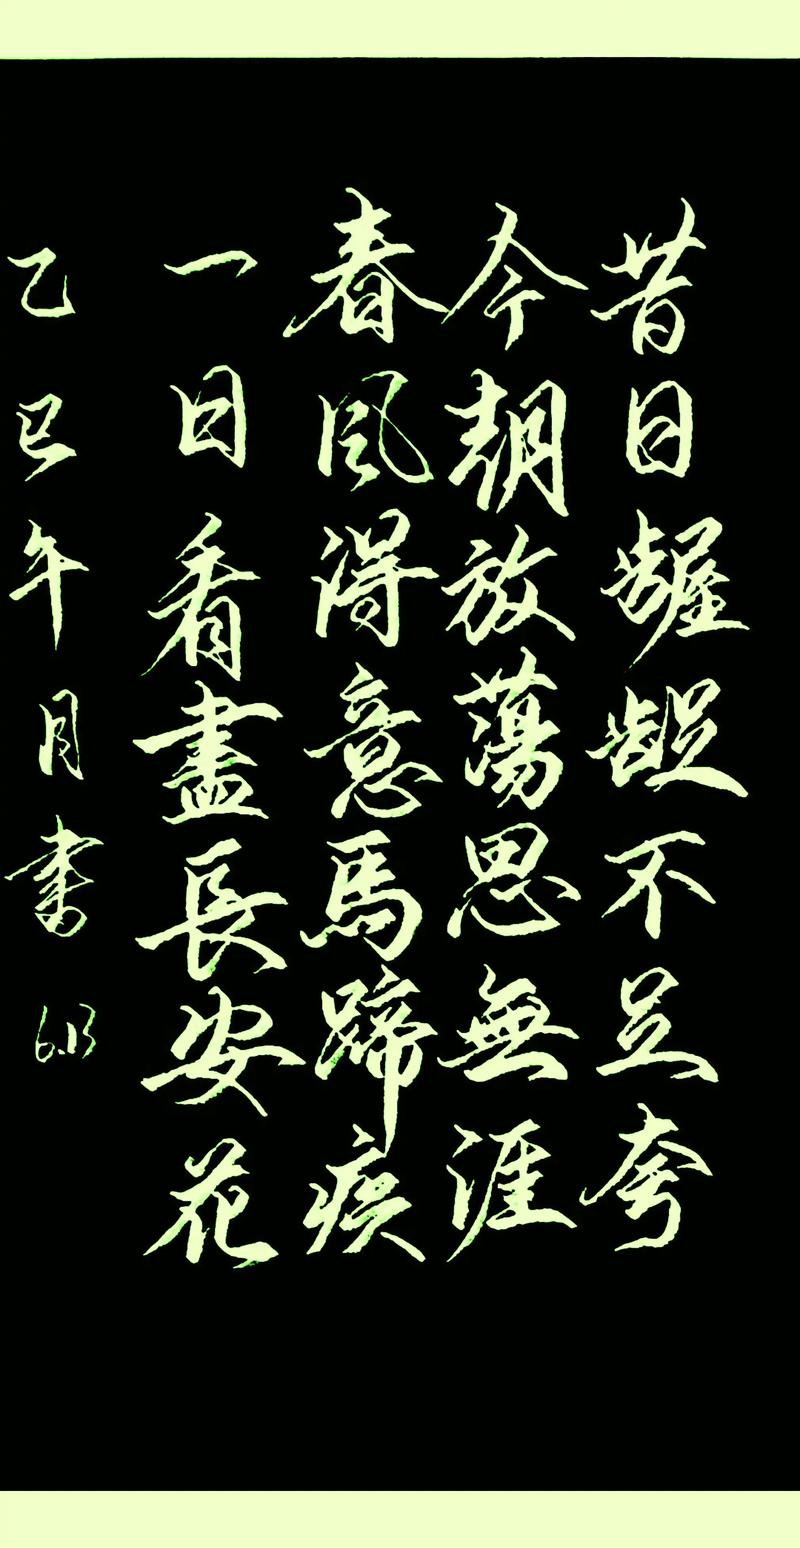 昔日齷齪不足夸
今朝放蕩思無涯
春風得意馬蹄疾
一日看盡長安花
乙巳午月書 6.13